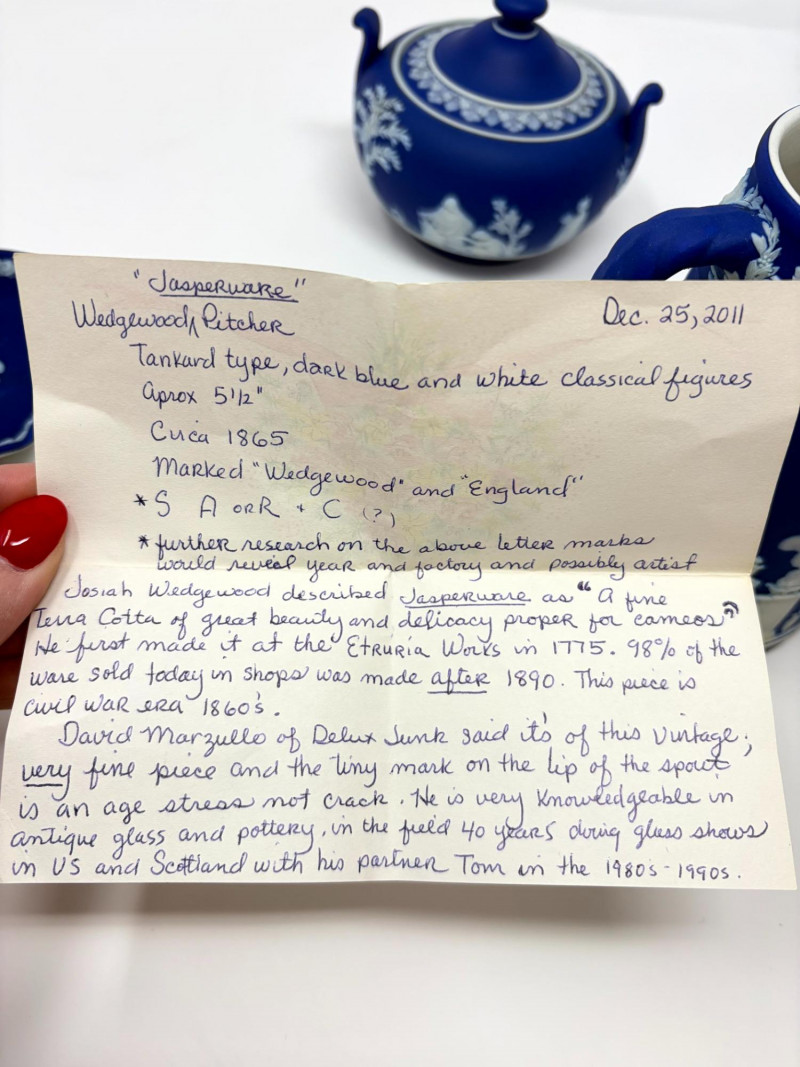 "Jasperware"
Wedgewood^ Pitcher
Dec. 25, 2011
Tankard type, dark blue and white classical figures
Aprox 5 1/2"
Circa 1865
Marked "Wedgewood" and "England"
* S A or R + C (?)
* further research on the above letter marks
would reveal year and factory and possibly artist
Josiah Wedgewood described Jasperware as "A fine
Terra Cotta of great beauty and delicacy proper for cameos"
He first made it at the Etruria Works in 1775. 98% of the
ware sold today in shops was made after 1890. This piece is
civil war era 1860's.
David Marzullo of Delux Junk said it's of this vintage;
very fine piece and the tiny mark on the lip of the spout
is an age stress not crack. He is very knowledgeable in
antique glass and pottery, in the field 40 years doing glass shows
in US and Scottland with his partner Tom in the 1980s-1990s.